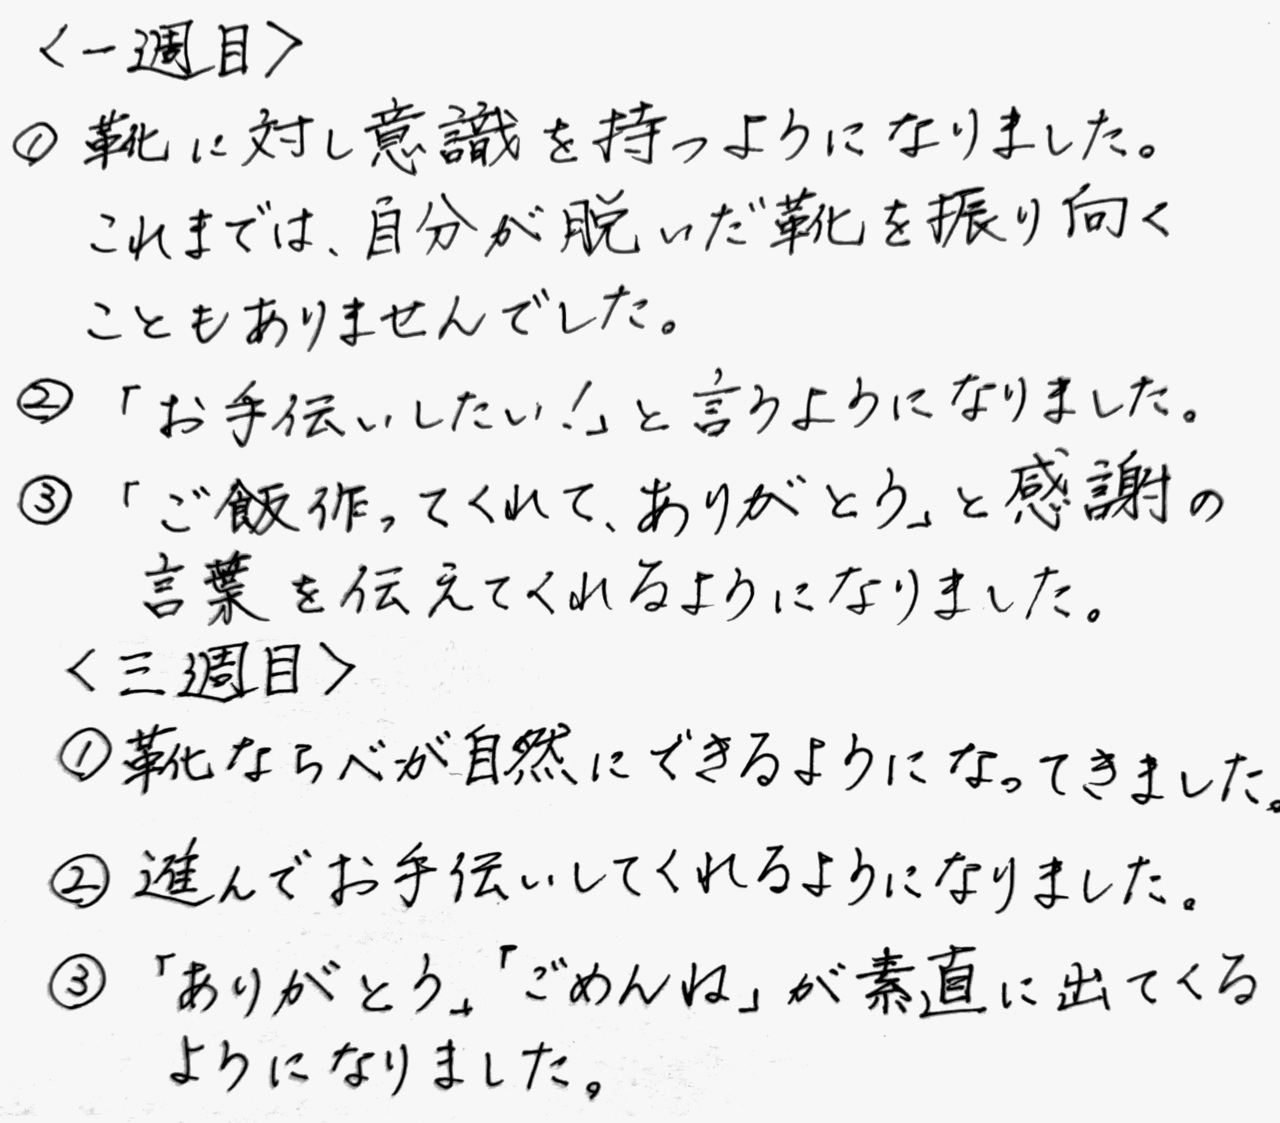 ＜一週目＞
① 靴に対し意識を持つようになりました。
これまでは、自分が脱いだ靴を振り向く
こともありませんでした。
② 「お手伝いしたい！」と言うようになりました。
③ 「ご飯作ってくれて、ありがとう」と感謝の
言葉を伝えてくれるようになりました。
＜三週目＞
① 靴ならべが自然にできるようになってきました。
② 進んでお手伝いしてくれるようになりました。
③ 「ありがとう」「ごめんね」が素直に出てくる
ようになりました。